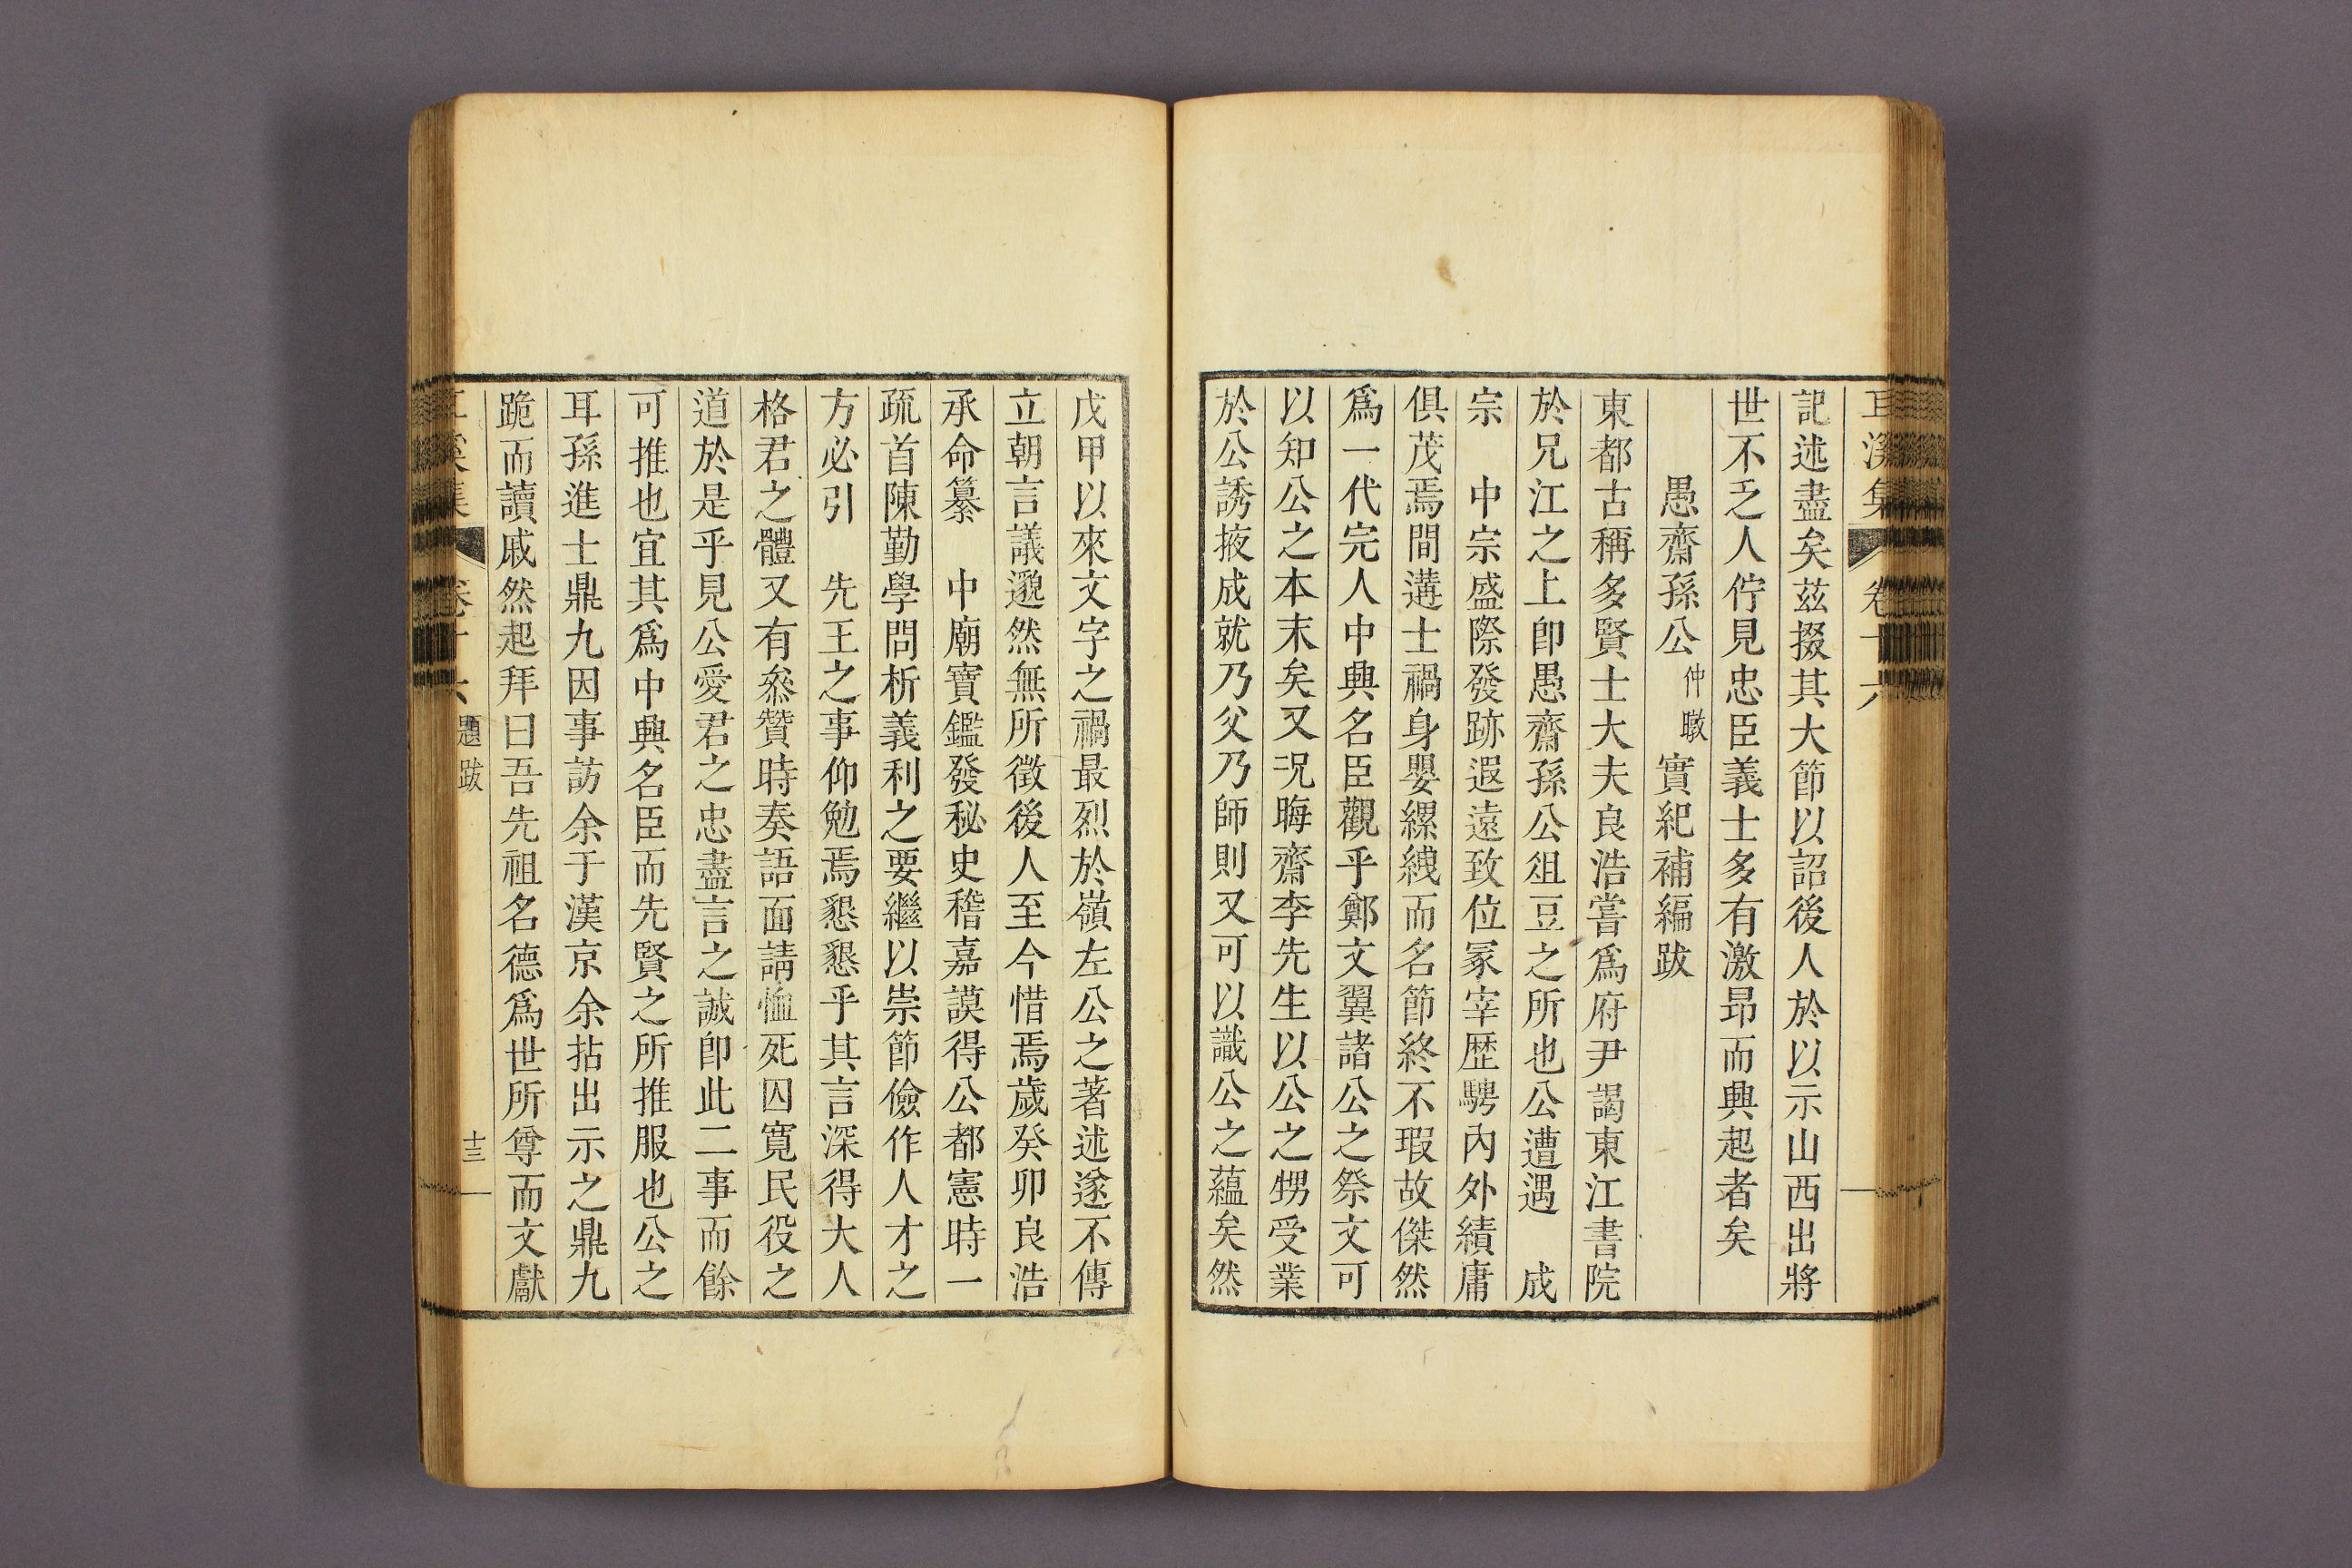 耳溪集 卷十六
記述盡矣茲掇其大節以詔後人於以示山西出將
世不乏人佇見忠臣義士多有激昂而興起者矣
愚齋孫公仲暾實紀補編跋
東都古稱多賢士大夫良浩嘗爲府尹謁東江書院
於兄江之上卽愚齋孫公俎豆之所也公遭遇 成
宗 中宗盛際發跡遐遠致位冢宰歷騁內外績庸
俱茂焉間遘士禍身嬰縲絏而名節終不瑕故傑然
爲一代完人中興名臣觀乎鄭文翼諸公之祭文可
以知公之本末矣又況晦齋李先生以公之甥受業
於公誘掖成就乃父乃師則又可以識公之蘊矣然
戊甲以來文字之禍最烈於嶺左公之著述遂不傳
立朝言議邈然無所徵後人至今惜焉歲癸卯良浩
承命纂 中廟寶鑑發秘史稽嘉謨得公都憲時一
疏首陳勤學問析義利之要繼以崇節儉作人才之
方必引 先王之事仰勉焉懇懇乎其言深得大人
格君之體又有叅贊時奏語面請恤死囚寬民役之
道於是乎見公愛君之忠盡言之誠卽此二事而餘
可推也宜其爲中興名臣而先賢之所推服也公之
耳孫進士鼎九因事訪余于漢京余拈出示之鼎九
跪而讀戚然起拜曰吾先祖名德爲世所尊而文獻
耳溪集 卷十六 題跋 十三